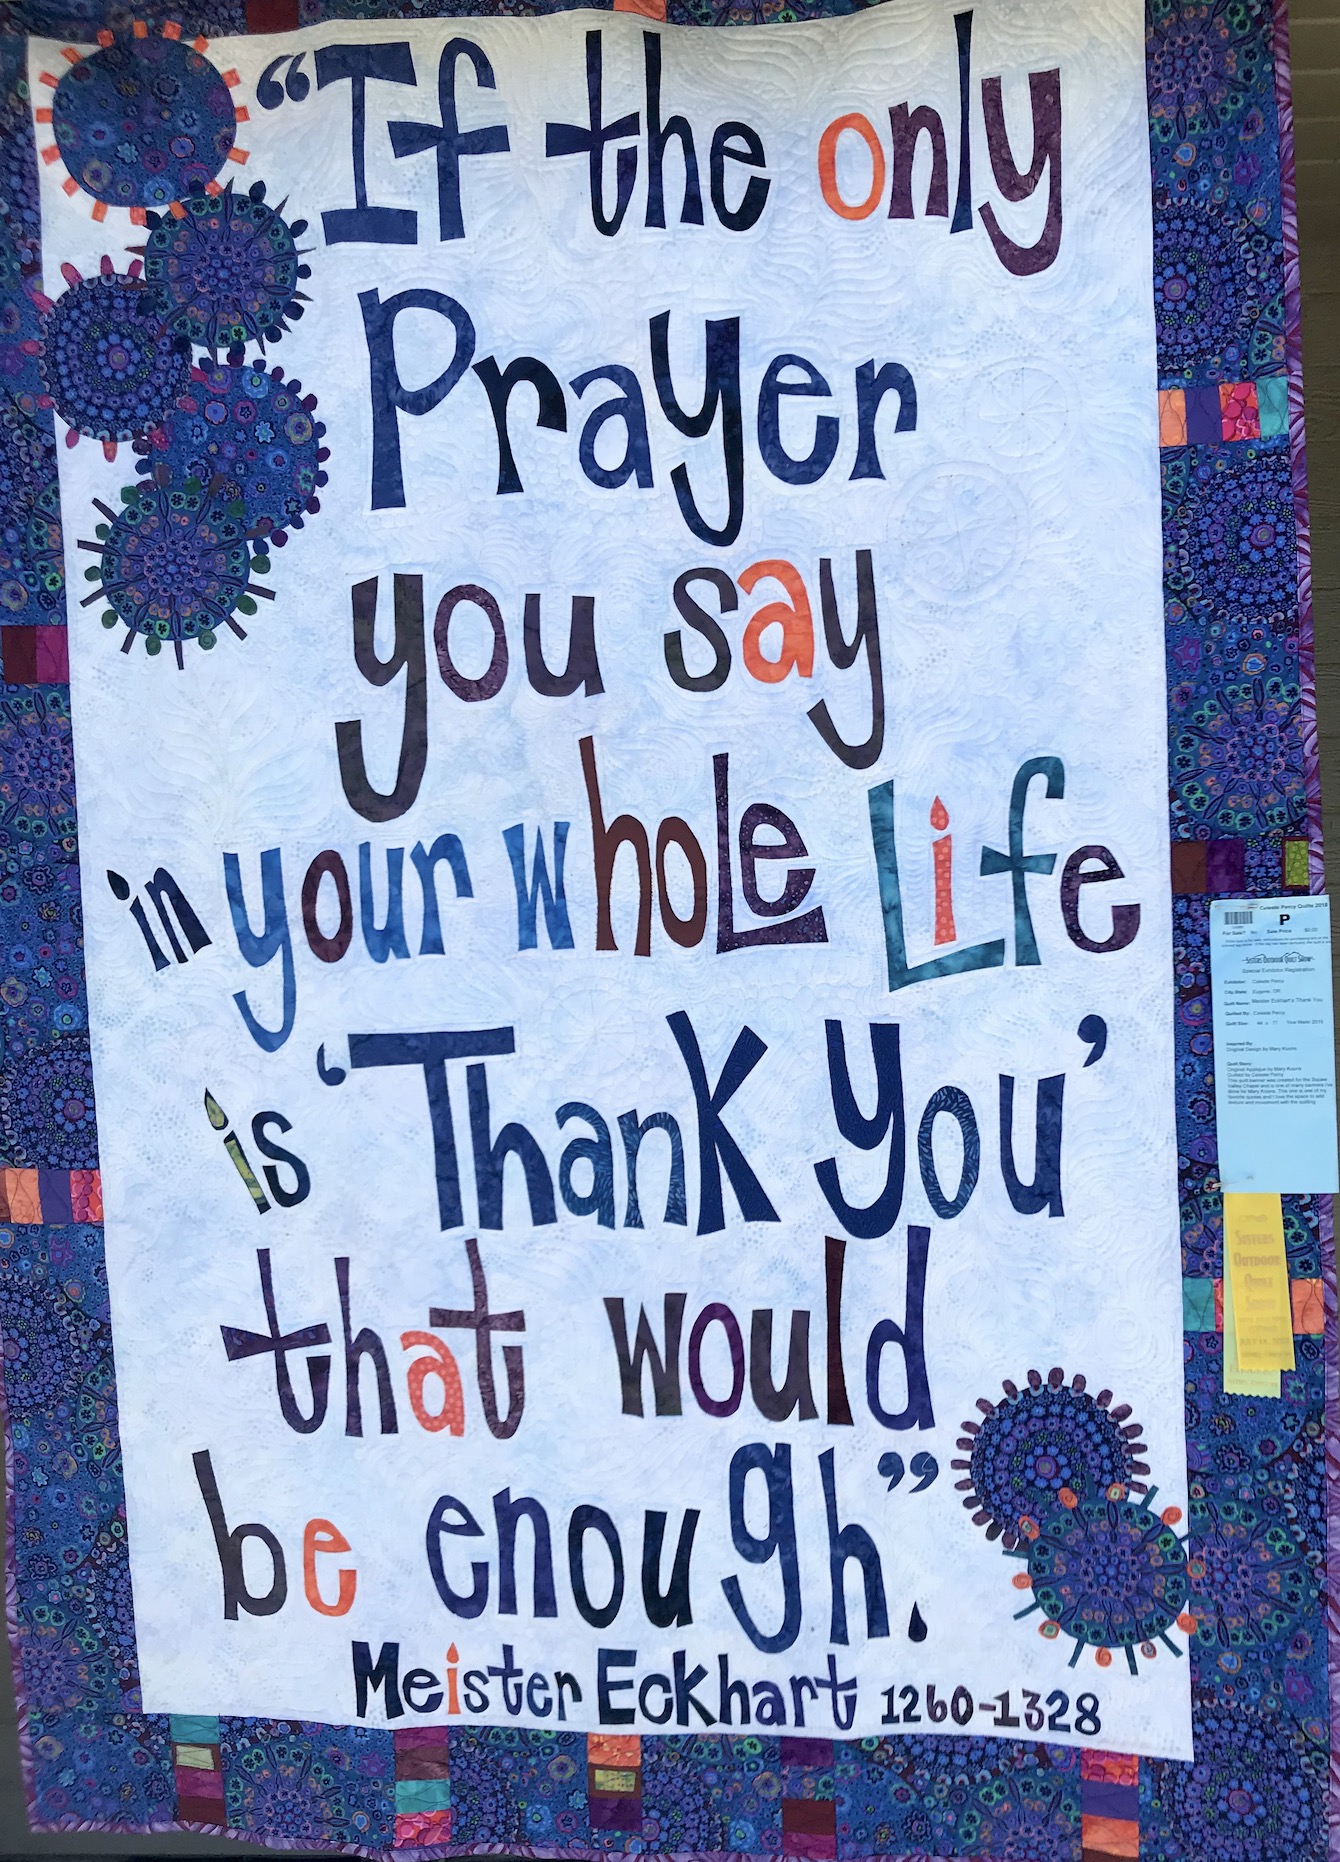 “If the only
Prayer
you say
in your whole Life
is ‘Thank you’
that would
be enough.”
Meister Eckhart 1260-1328
Celeste Percy Quilts 2018
P
For Sale? No Sale Price $0.00
Sisters Outdoor Quilt Show
Special Exhibitor Registration
Exhibitor: Celeste Percy
City, State: Eugene, OR
Quilt Name: Meister Eckhart's Thank You
Quilted By: Celeste Percy
Inspired By:
Original Design by Mary Koons
Quilt Story:
Original Applique by Mary Koons
Quilted by Celeste Percy
Sisters
Outdoor
Quilt
Show